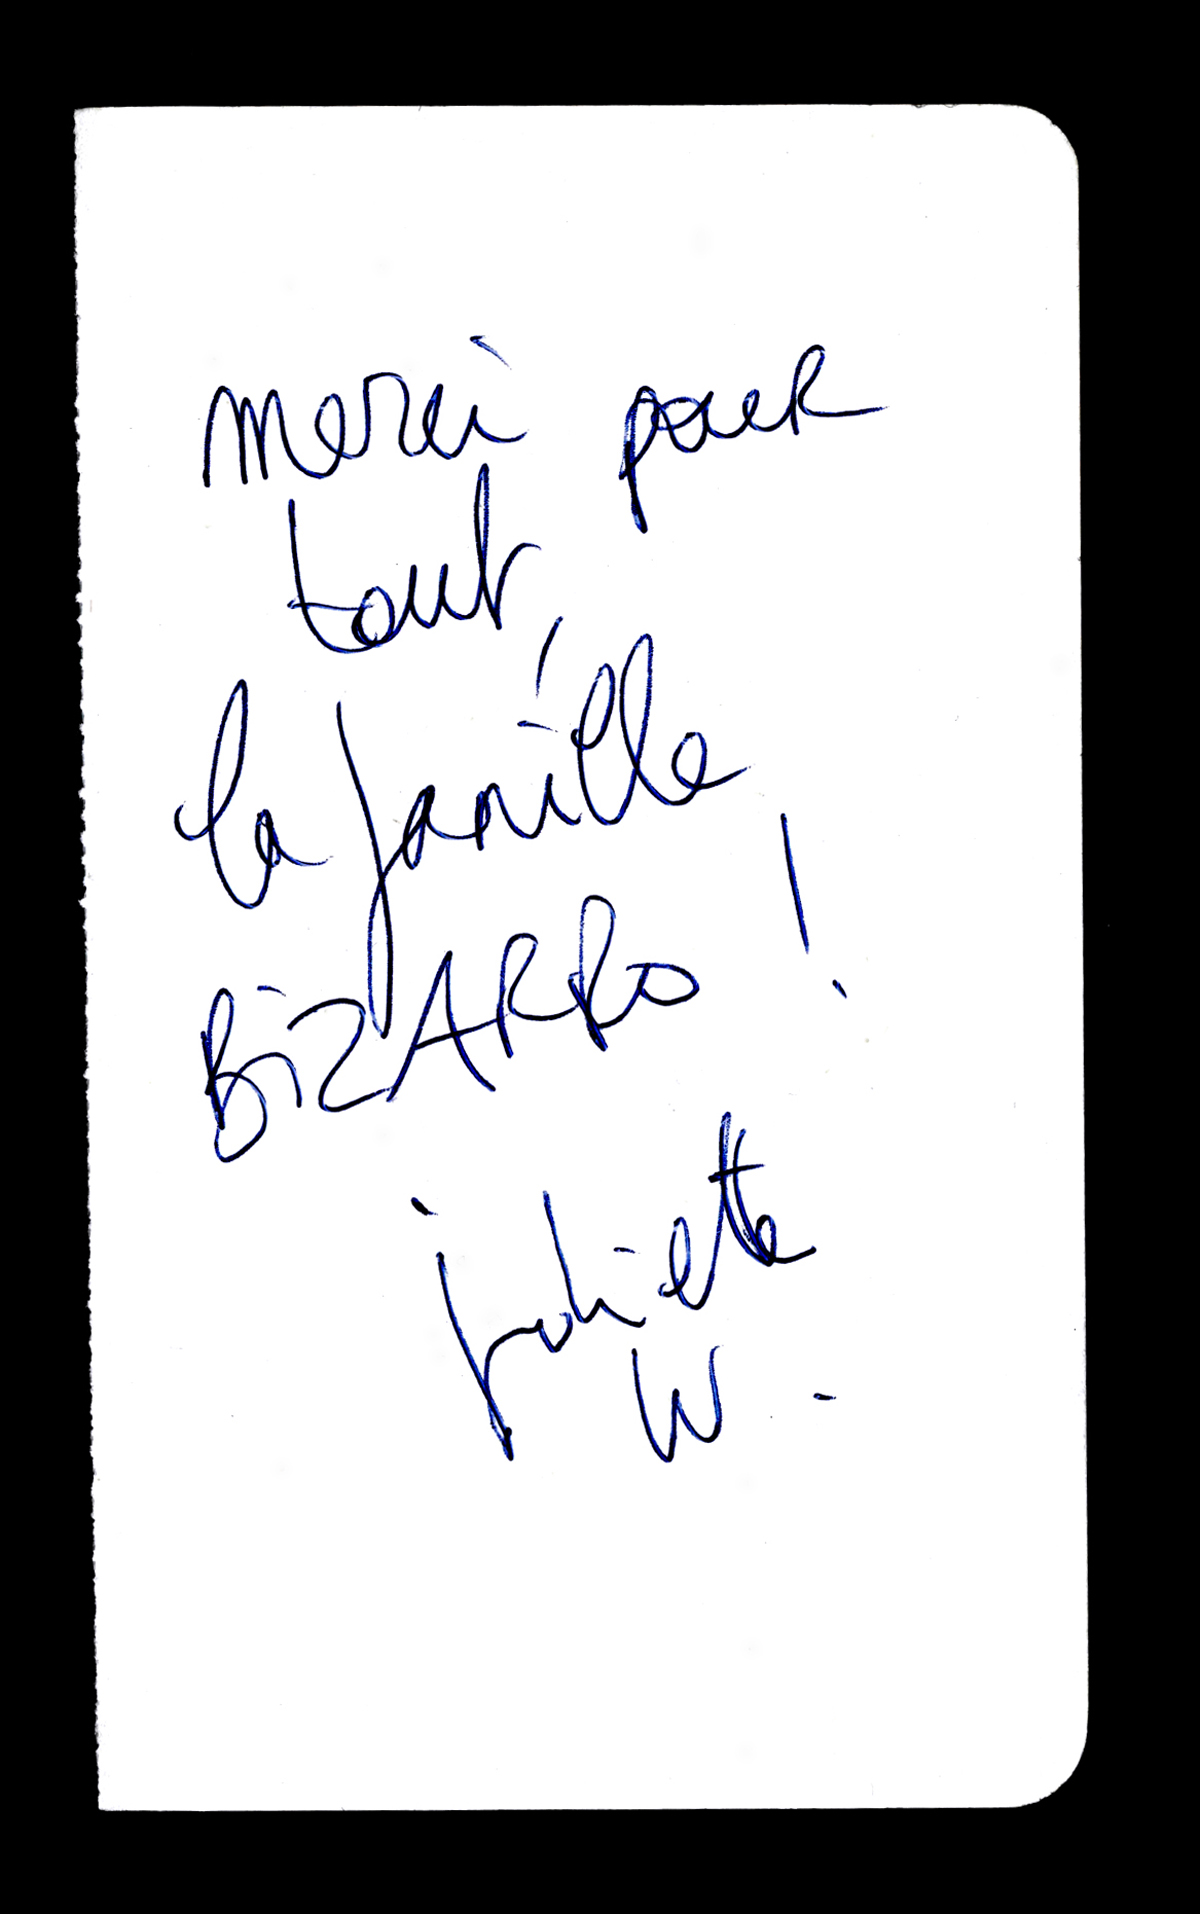 merci pour
tout,
la famille
BiZARRO !
juliette
W.